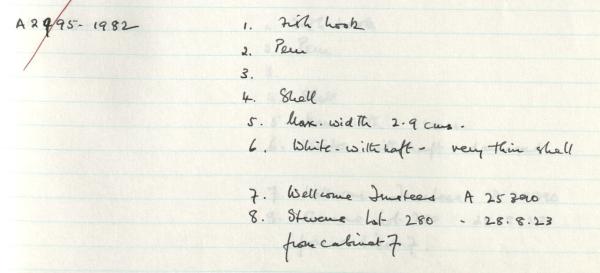 A2995-1982 1. Fish hook
2. Peru
3.
4. Shell
5. Max. width 2.9 cms.
6. White - with haft - very thin shell
7. Wellcome Trustees A 25390
8. Stevens Lot 280 - 28.8.23
from cabinet 7